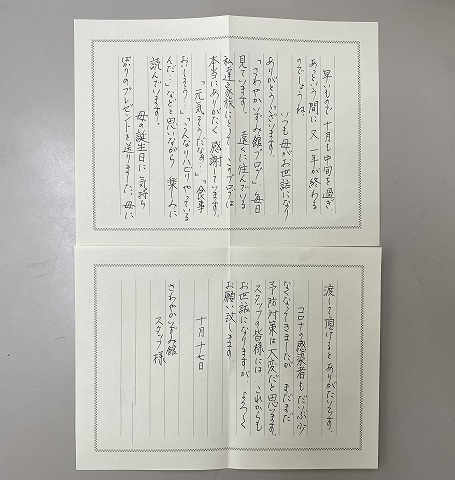 早いもので十月も中旬を過ぎ
あっという間に又一年が終わる
のでしょうね。
いつも母がお世話になり
ありがとうございます。
「さわやかいずみ館ブログ」毎日
見ています。遠くに住んでいる
私達家族にとって、このブログは
本当にありがたく感謝しています。
「元気そうだなぁ？」「食事
おいしそう？」「こんなリハビリやっている
んだ…」などと思いながら楽しみに
読んでいます。
母の誕生日に気持ち
ばかりのプレゼントを送りました。母に
渡して頂けるとありがたいです。
コロナの感染者もだいぶ少
なくなってきましたが まだまだ
予防対策は大変だと思います。
スタッフの皆様には これからも
お世話になりますが、よろしく
お願い致します。
十月十七日
さわやかいずみ館
スタッフ様